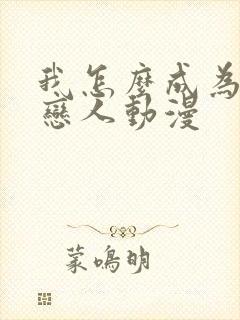 我怎麼成為
戀人動漫
葉鳴明